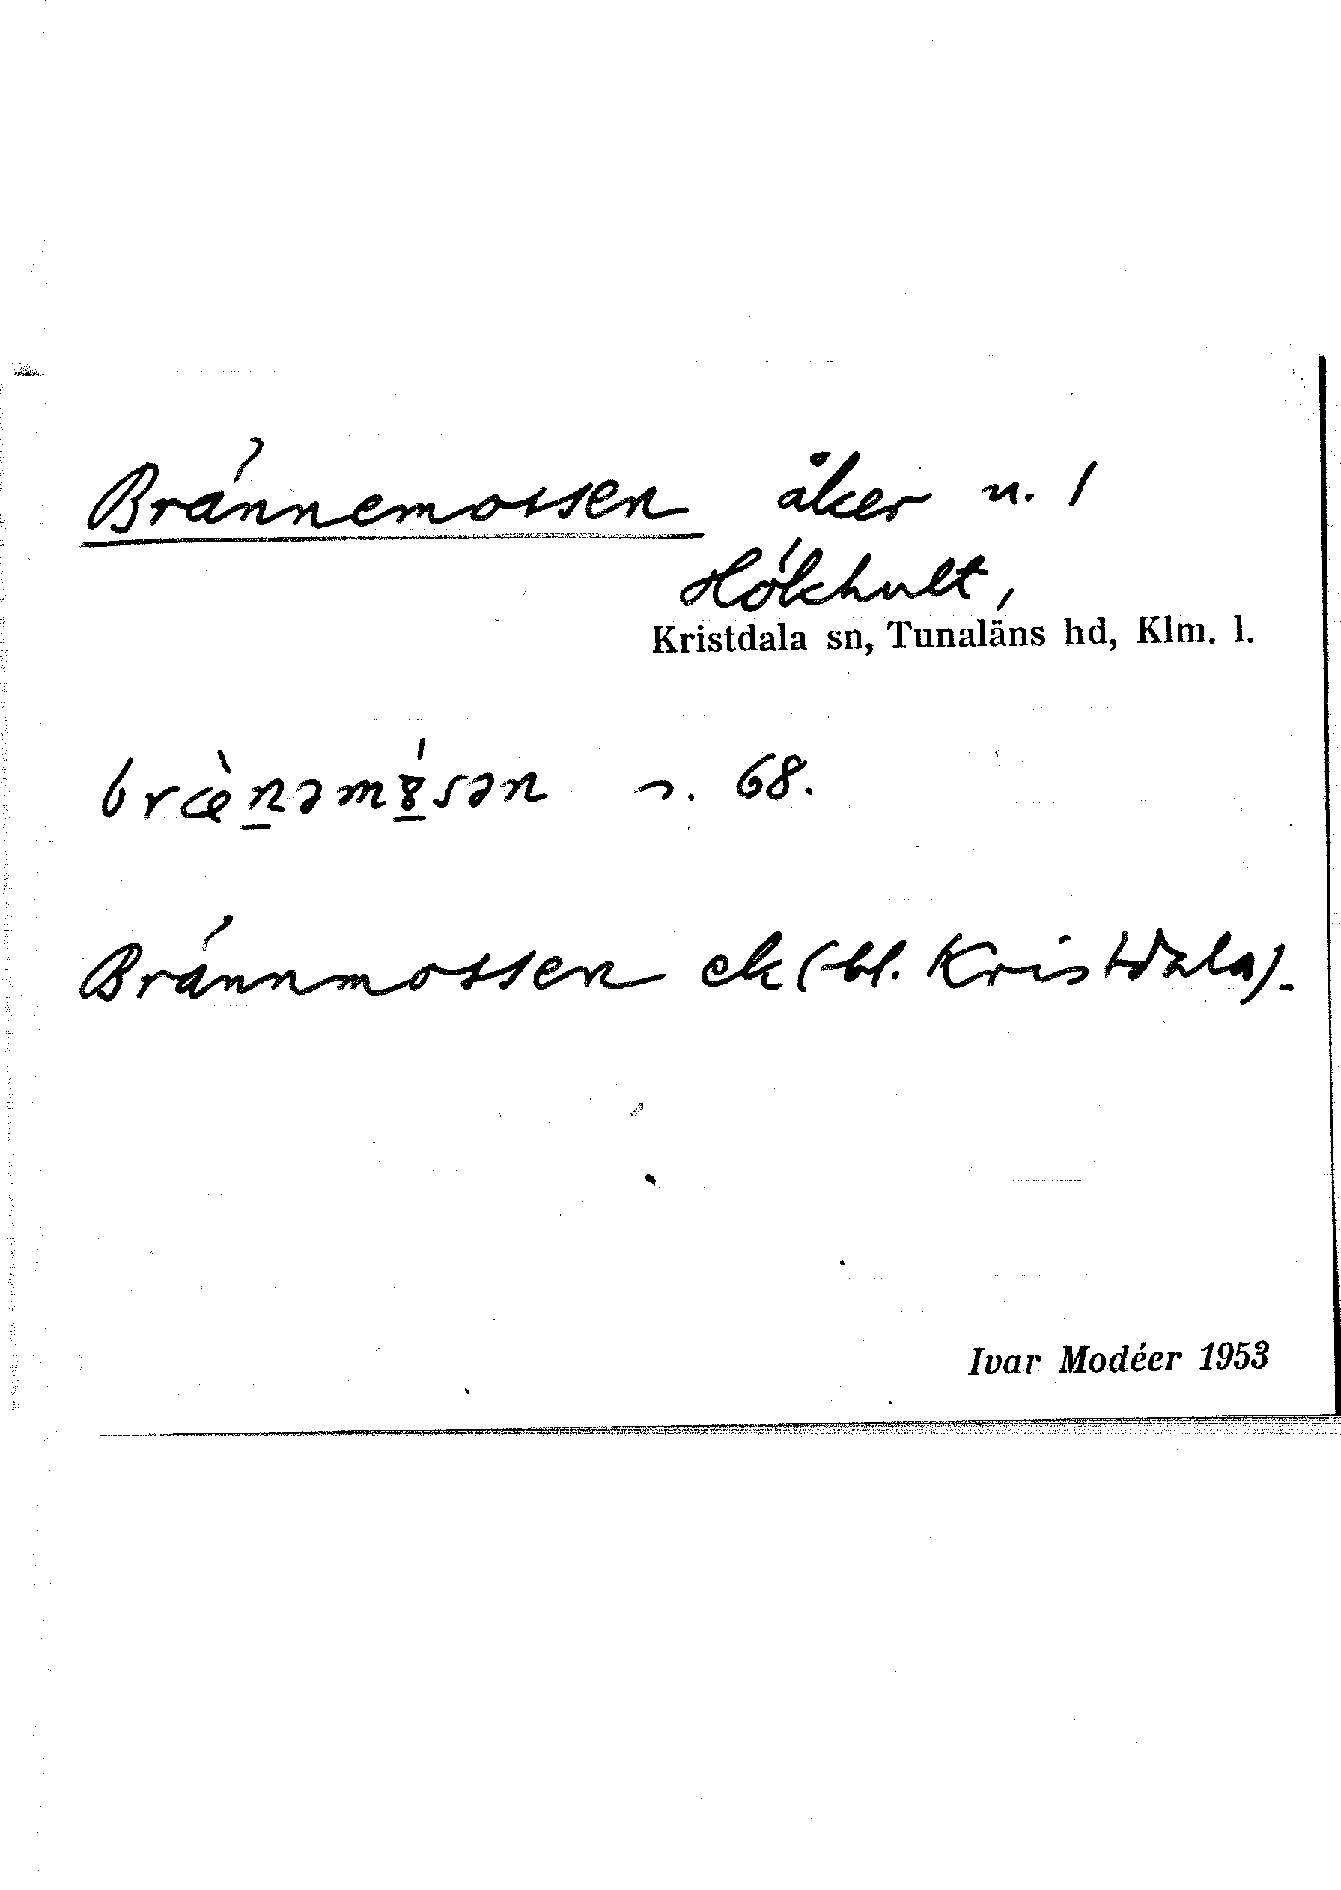 Brännemossen åker n. 1
Hökhult,
Kristdala sn, Tunaläns hd, Klm. l.
bræ̀n̠əmȣ̠́sən s. 68.
Brännmossen ek (bl. Kristdala).
Ivar Modéer 1953